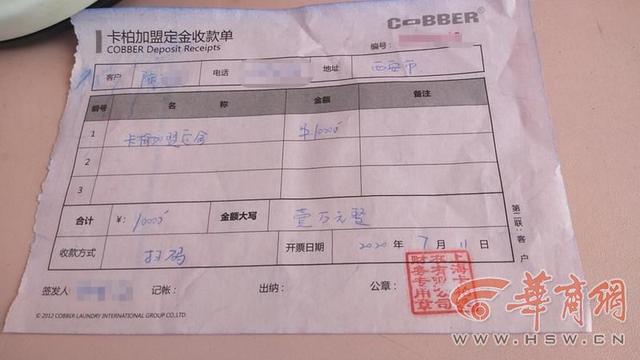 卡柏加盟定金收款单
COBBER Deposit Receipts
COBBER
编号:
客户 陈 电话 地址 西安市
编号 名 称 金额 备注
1 卡柏加盟定金 ¥:10000
2
3
合计 ¥: 10000 金额大写 壹万元整
收款方式 扫码 开票日期 2020 年 7 月 11 日
签发人: 记帐: 出纳: 公章:
第二联:客户
上海卡
财务专用章
© 2012 COBBER LAUNDRY INTERNATIONAL GROUP CO.,LTD.
华商网
WWW.HSW.CN